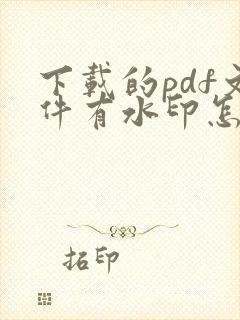 下载的pdf文
件有水印怎
拓印